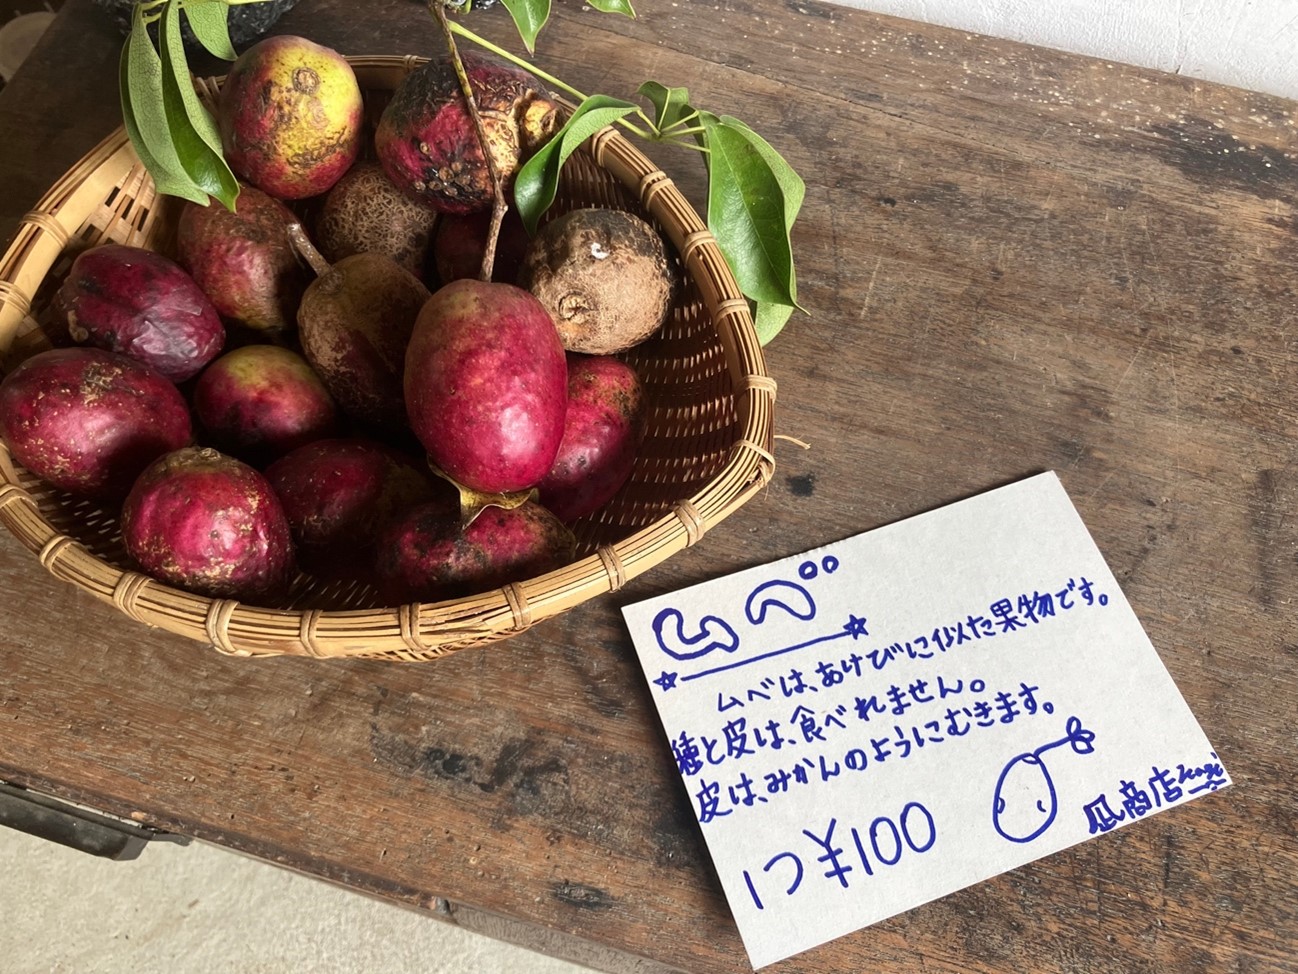 ムベ
ムベは、あけびに似た果物です。
種と皮は、食べれません。
皮は、みかんのようにむきます。
1つ¥100
凪商店